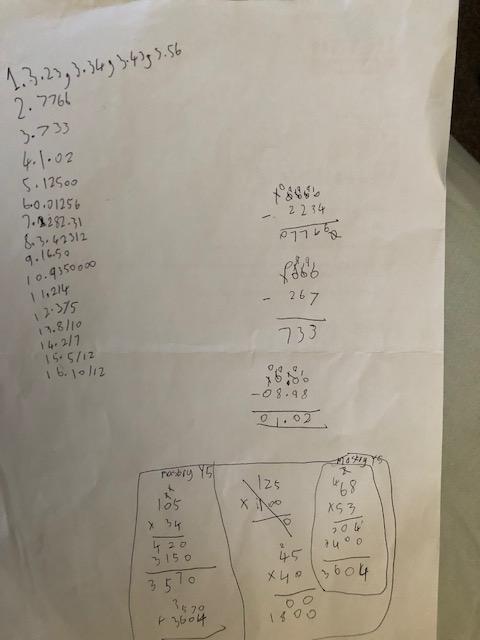 1. 3.23, 3.34, 3.43, 3.56
2. 7766
3. 733
4. 1.02
5. 12500
6. 0.01256
7. 1282.31
8. 3.42312
9. 1650
10. 9350000
11. 214
12. 3/5
13. 8/10
14. 2/7
15. 5/12
16. 10/12
- 2234
- 267
733
- 08.98
01.02
mastry Y5
105
x 34
420
3150
3570
3570
+ 3604
125
x 100
0
45
x 40
00
1800
Mastry Y5
68
x 53
204
3400
3604